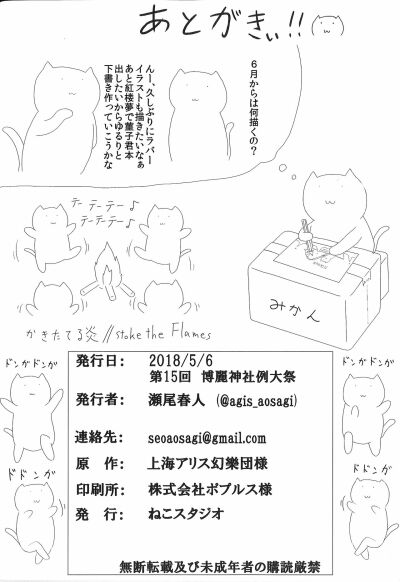 あとがきぃ!!
6月からは何描くの?
んー、久しぶりにラバー
イラストも描きたいなぁ
あと紅楼夢で菫子君本
出したいからゆるりと
下書き作っていこうかな
テーテーテー♪
テーテーテー♪
みかん
かきたてる炎//Stoke the Flames
ドンガドンガ
ドンガドンガ
ドドンガ
ドドンガ
発行日: 2018/5/6
第15回 博麗神社例大祭
発行者: 瀬尾春人 (@agis_aosagi)
連絡先: seoaosagi@gmail.com
原 作: 上海アリス幻樂団様
印刷所: 株式会社ポプルス様
発 行: ねこスタジオ
無断転載及び未成年者の購読厳禁